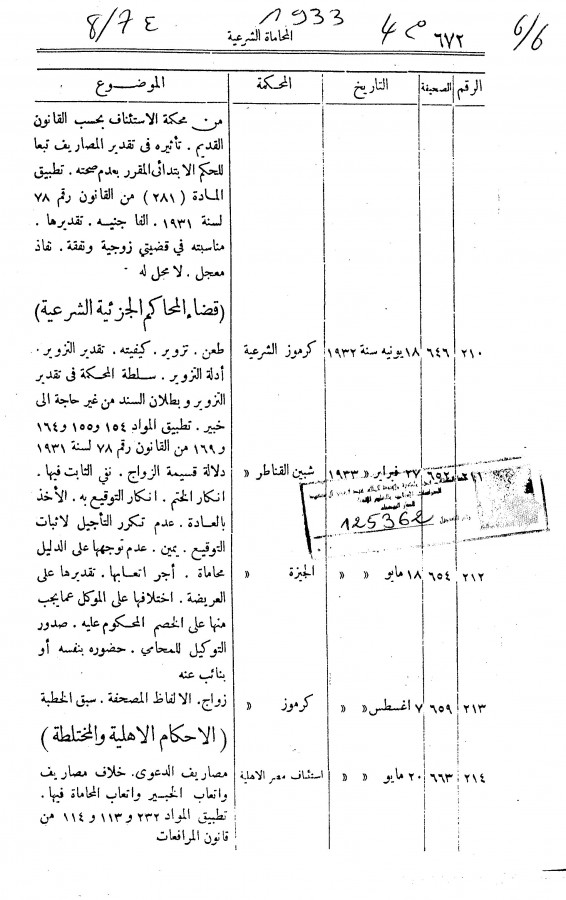 8/7
1933
4
6/6
٦٧٢
المحاماة الشرعية
الرقم الصحيفة التاريخ المحكمة الموضوع
من محكمة الاستئناف بحسب القانون
القديم . تأثيره فى تقدير المصاريف تبعا
للحكم الابتدائى المقرر بعدم صحته . تطبيق
المادة (٢٨١) من القانون رقم ٧٨
لسنة ١٩٣١ . الفا جنيه . تقديرها .
مناسبته في قضيتي زوجية ونفقة . نفاذ
معجل . لا محل له
(قضاء المحاكم الجزئية الشرعية)
٢١٠ ٦٤٦ ١٨ يونيه سنة ١٩٣٢ كرموز الشرعية طعن . تزوير . كيفيته . تقدير التزوير .
أدلة التزوير . سلطة المحكمة فى تقدير
التزوير و بطلان السند من غير حاجة الى
خبير . تطبيق المواد ١٥٤ و ١٥٥ و ١٦٤
و ١٦٩ من القانون رقم ٧٨ لسنة ١٩٣١
٢٧ فبراير » ١٩٣٣ شبين القناطر » دلالة قسيمة الزواج . نفي الثابت فيها .
انكار الختم . انكار التوقيع به . الأخذ
بالعادة . عدم تكرر التأجيل لاثبات
التوقيع . يمين . عدم توجهها على الدليل
125362
٢١٢ ٦٥٤ ١٨ مايو » » الجيزة » محاماة . أجر اتعابها . تقديرها على
العريضة . اختلافها على الموكل عما يجب
منها على الخصم المحكوم عليه . صدور
التوكيل للمحامي . حضوره بنفسه أو
بنائب عنه
٢١٣ ٦٥٩ ٧ اغسطس » » كرموز » زواج . الالفاظ المصحفة . سبق الخطبة
(الاحكام الاهلية والمختلطة)
٢١٤ ٦٦٣ ٢٠ مايو » » استئناف مصر الاهلية مصاريف الدعوى . خلاف مصاريف
واتعاب الخبير واتعاب المحاماة فيها .
تطبيق المواد ٢٣٢ و ١١٣ و ١١٤ من
قانون المرافعات